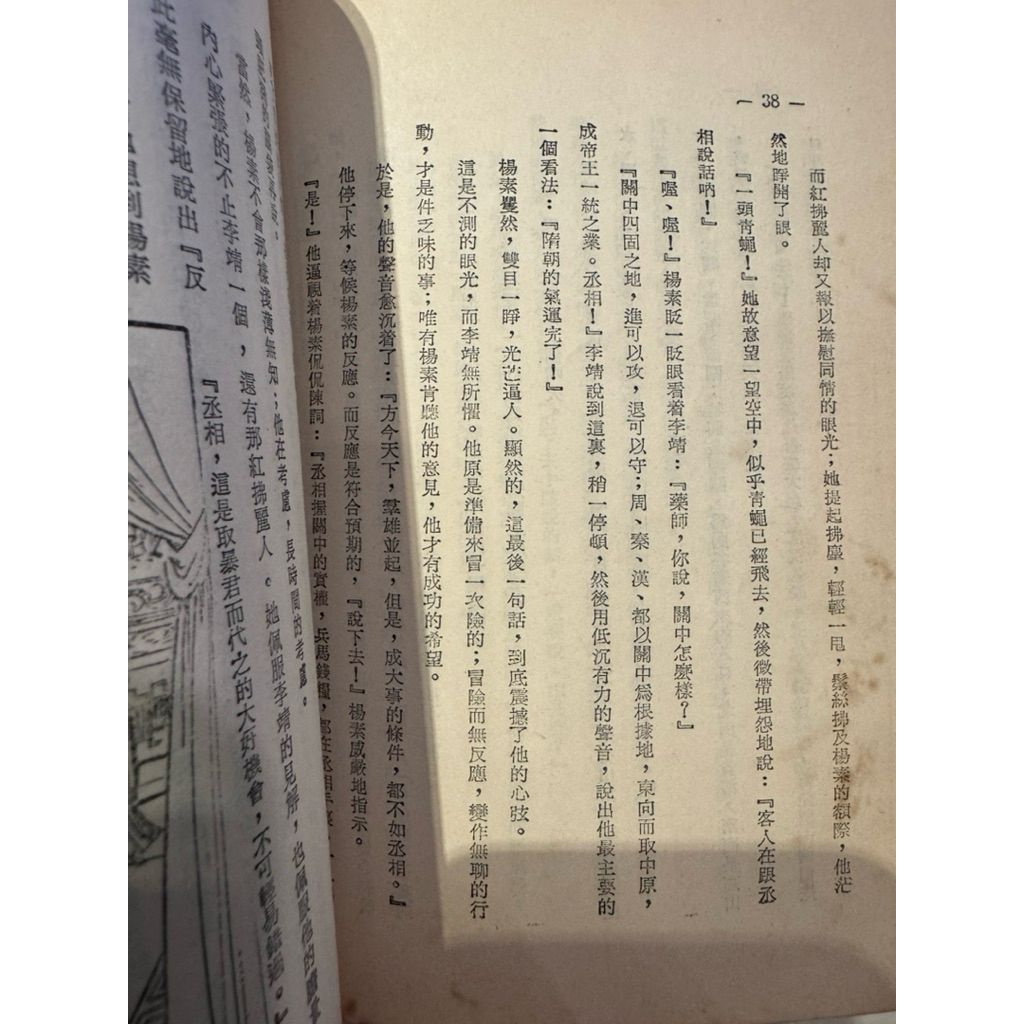 — 38 —
而紅拂麗人却又報以撫慰同情的眼光；她提起拂塵，輕輕一甩，鬃絲拂及楊素的額際，他茫
然地睜開了眼。
『一頭青蠅！』她故意望一望空中，似乎青蠅已經飛去，然後微帶埋怨地說：『客人在跟丞
相說話吶！』
『喔、喔！』楊素眨一眨眼看着李靖：『藥師，你說，關中怎麼樣？』
『關中四固之地，進可以攻，退可以守；周、秦、漢、都以關中爲根據地，東向而取中原，
成帝王一統之業。丞相！』李靖說到這裏，稍一停頓，然後用低沉有力的聲音，說出他最主要的
一個看法：『隋朝的氣運完了！』
楊素矍然，雙目一睜，光芒逼人。顯然的，這最後一句話，到底震撼了他的心弦。
這是不測的眼光，而李靖無所懼。他原是準備來冒一次險的；冒險而無反應，變作無聊的行
動，才是件乏味的事；唯有楊素肯聽他的意見，他才有成功的希望。
於是，他的聲音愈沉着了：『方今天下，羣雄並起，但是，成大事的條件，都不如丞相。』
他停下來，等候楊素的反應。而反應是符合預期的，『說下去！』楊素威嚴地指示。
『是！』他逼視着楊素侃侃陳詞：『丞相握關中的實權，兵馬錢糧，都在丞相手
『丞相，這是取暴君而代之的大好機會，不可輕易錯過。』
當然，楊素不會那樣淺薄無知；他在考慮，長時間的考慮。
內心緊張的不止李靖一個，還有那紅拂麗人。她佩服李靖的見解，也佩服他的
此毫無保留地說出『反
到楊素